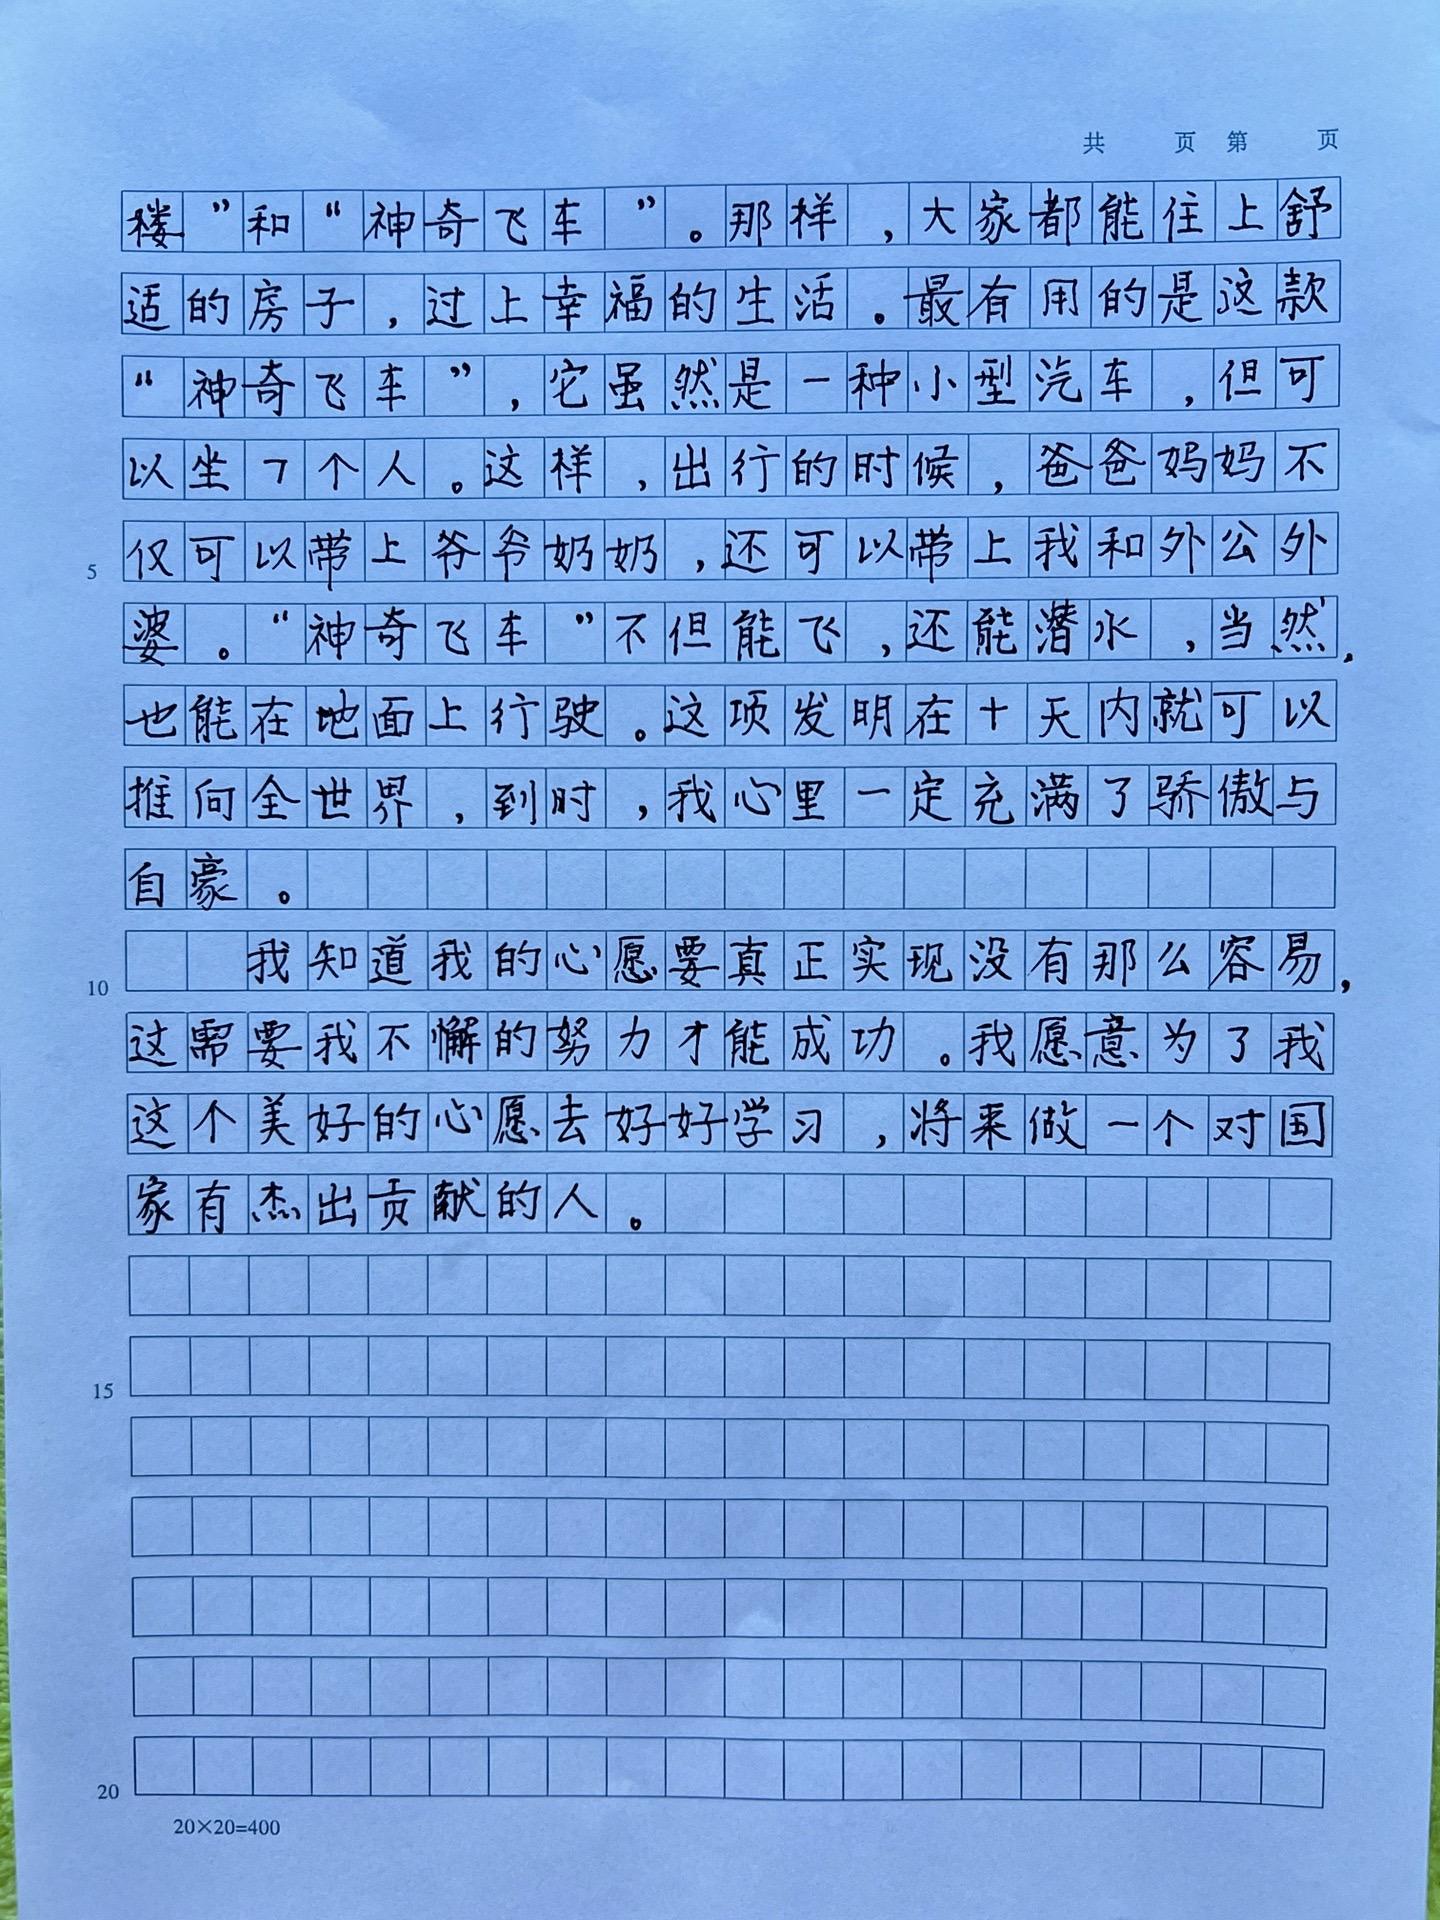 共 页 第 页
楼”和“神奇飞车”。那样,大家都能住上舒
适的房子,过上幸福的生活。最有用的是这款
“神奇飞车”,它虽然是一种小型汽车,但可
以坐7个人。这样,出行的时候,爸爸妈妈不
仅可以带上爷爷奶奶,还可以带上我和外公外
5
婆。“神奇飞车”不但能飞,还能潜水,当然,
也能在地面上行驶。这项发明在十天内就可以
推向全世界,到时,我心里一定充满了骄傲与
自豪。
我知道我的心愿要真正实现没有那么容易,
10
这需要我不懈的努力才能成功。我愿意为了我
这个美好的心愿去好好学习,将来做一个对国
家有杰出贡献的人。
15
20
20×20=400